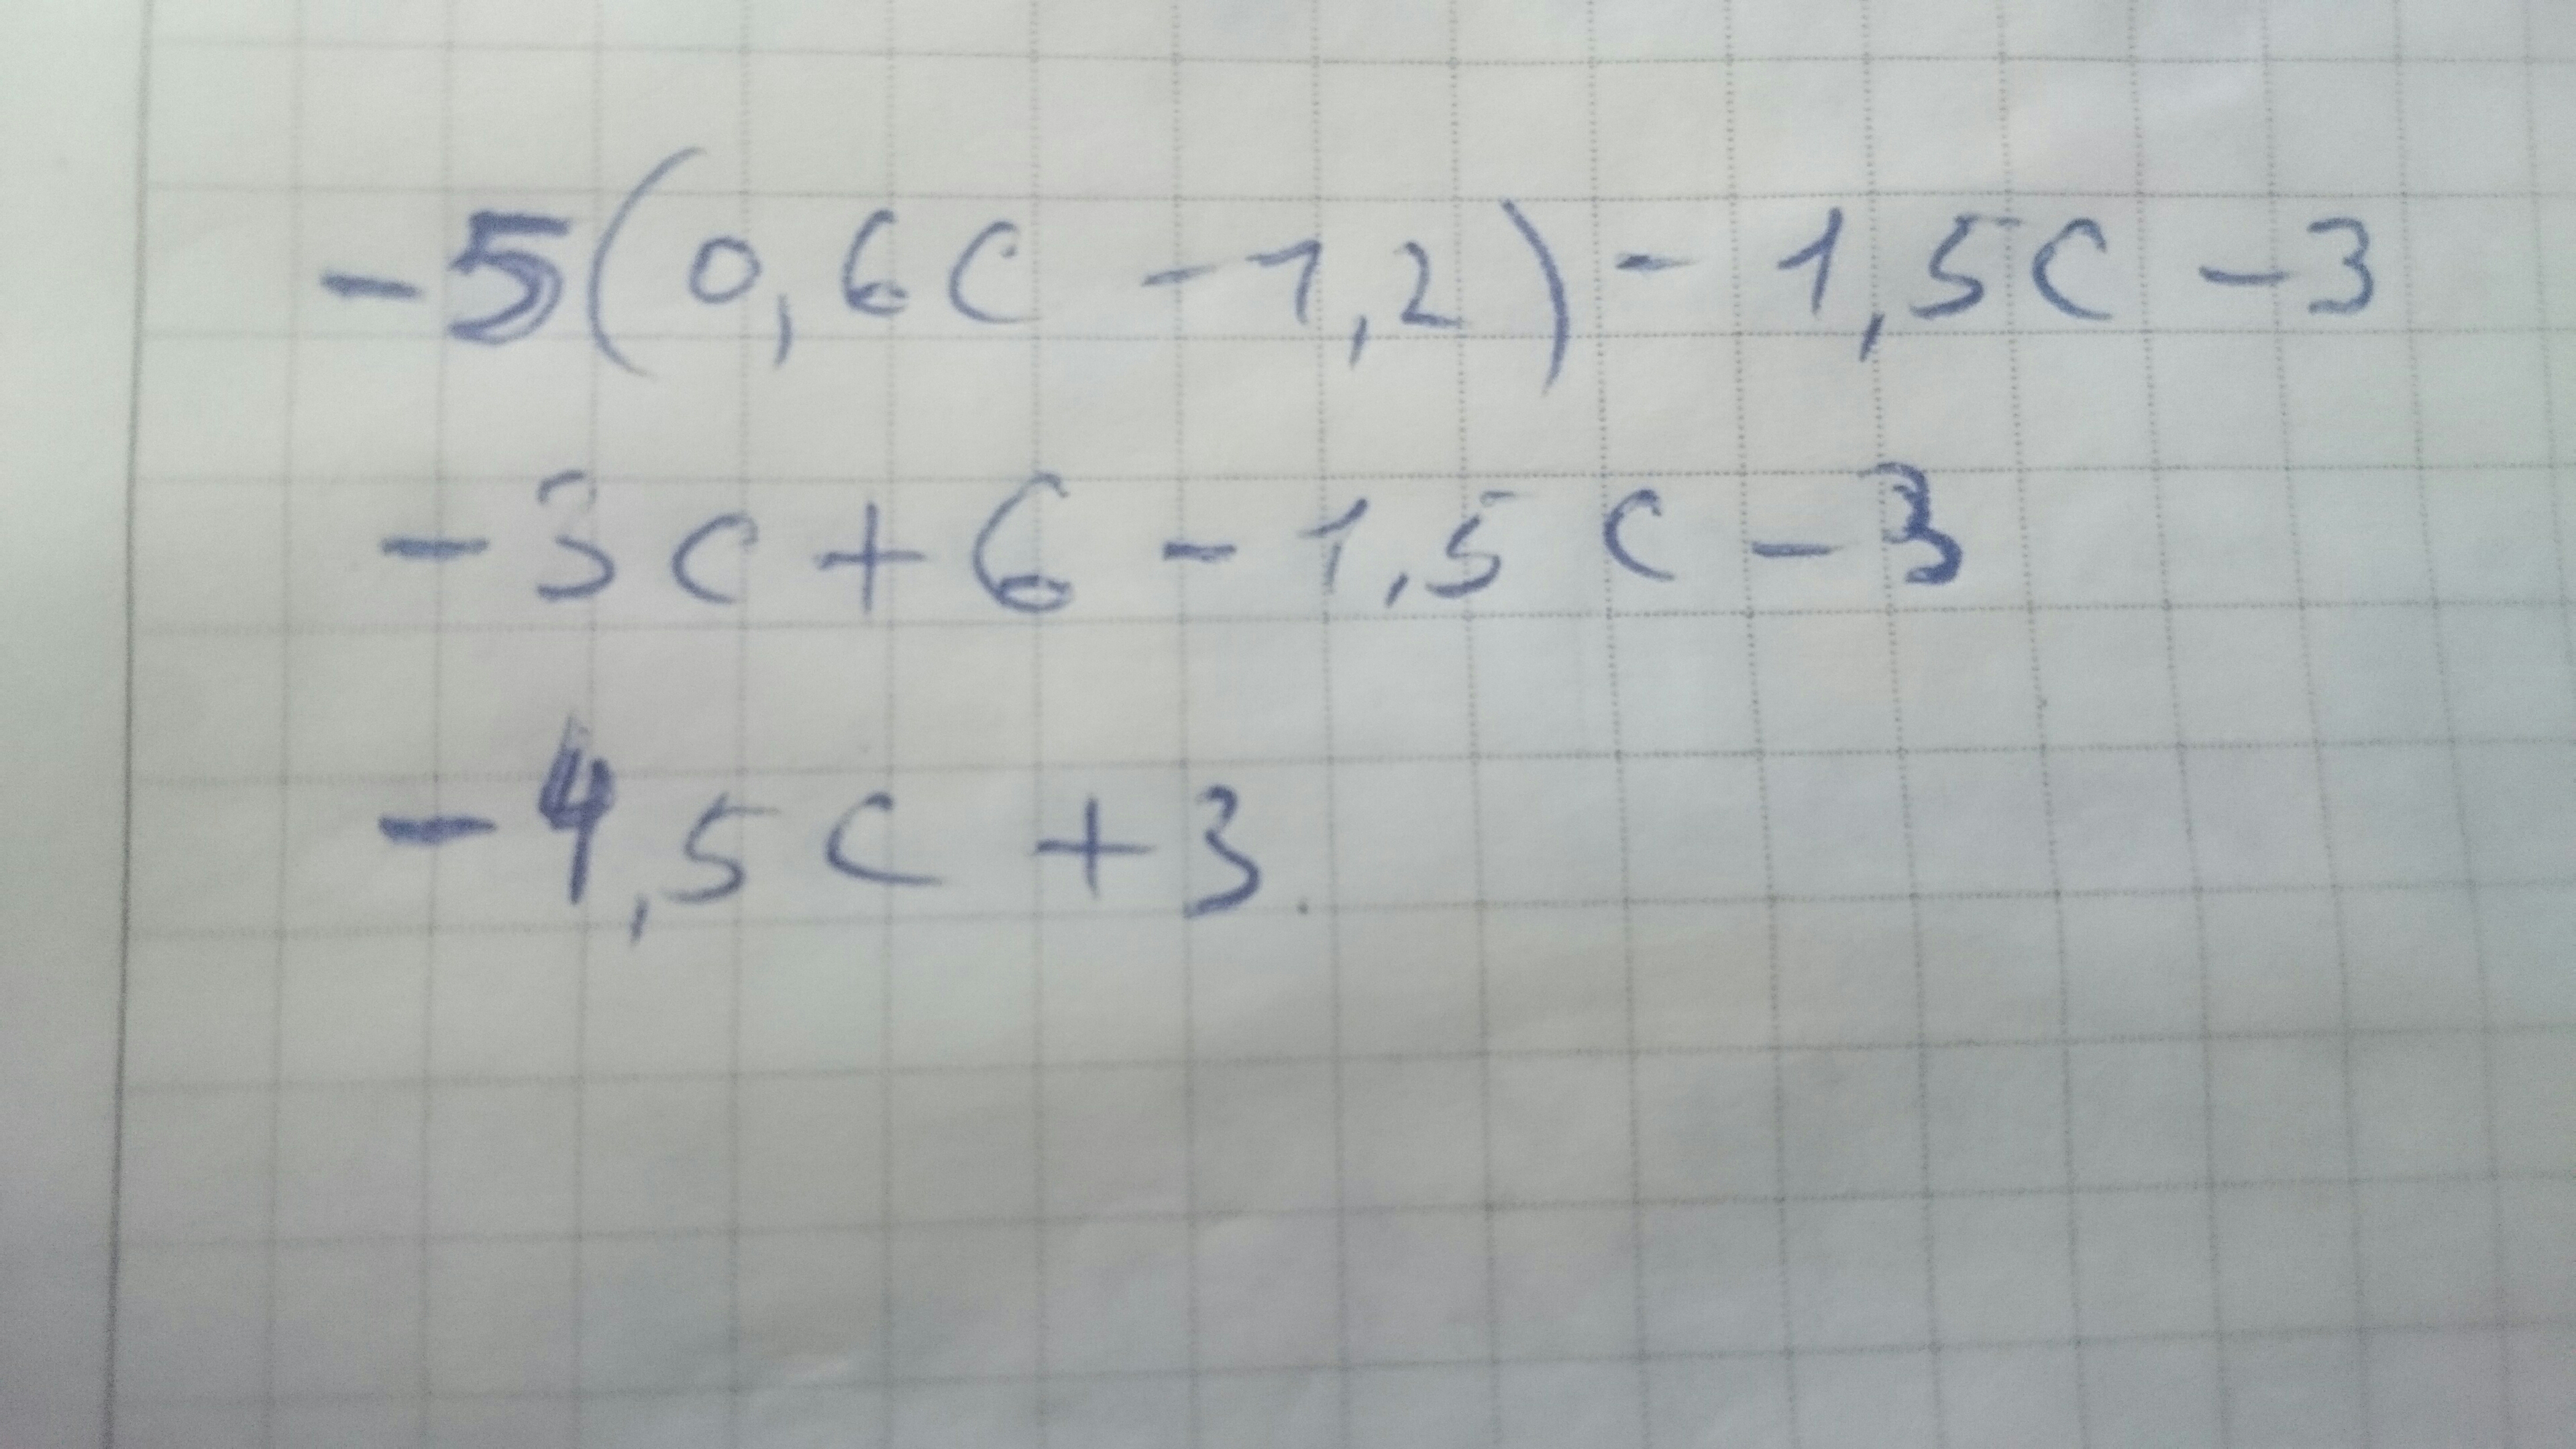 -5(0,6c -1,2) - 1,5c - 3
-3c + 6 - 1,5c - 3
-4,5c + 3.